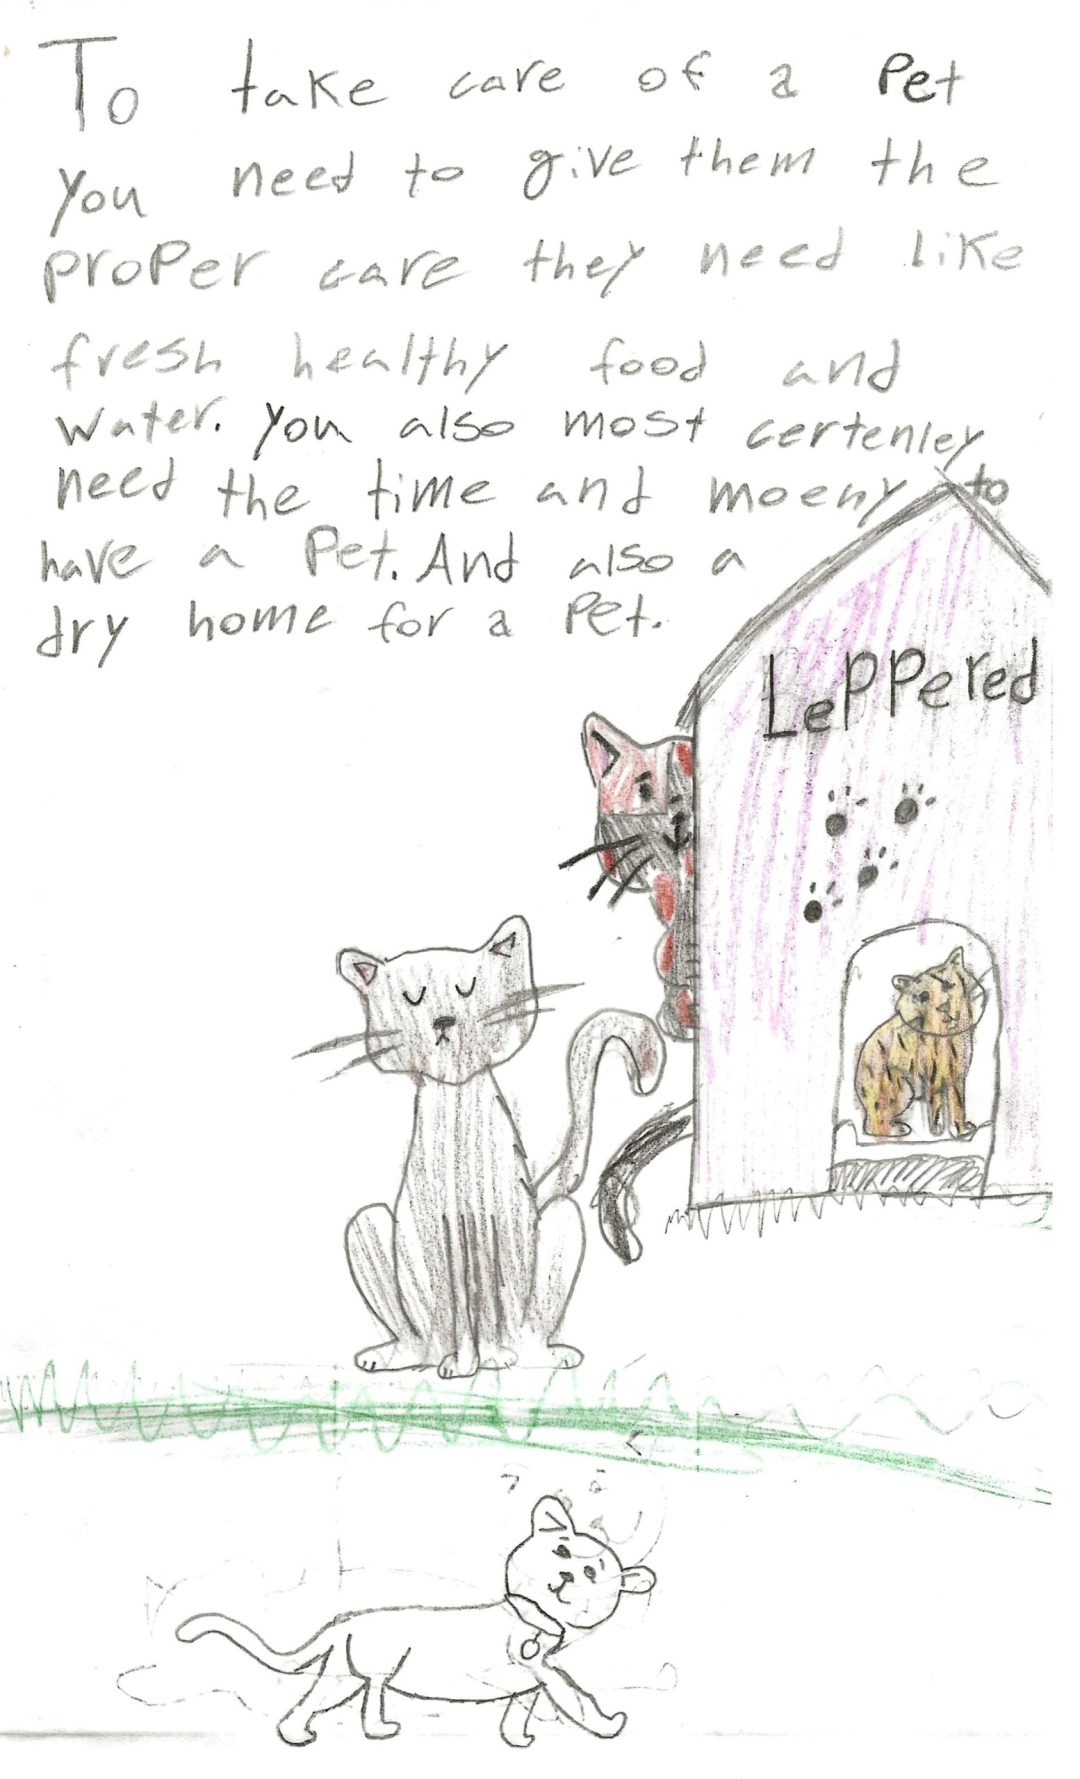 To take care of a Pet
you need to give them the
proper care they need like
fresh healthy food and
water. you also most certenley
need the time and moeny to
have a Pet. And also a
dry home for a Pet.
Leppered